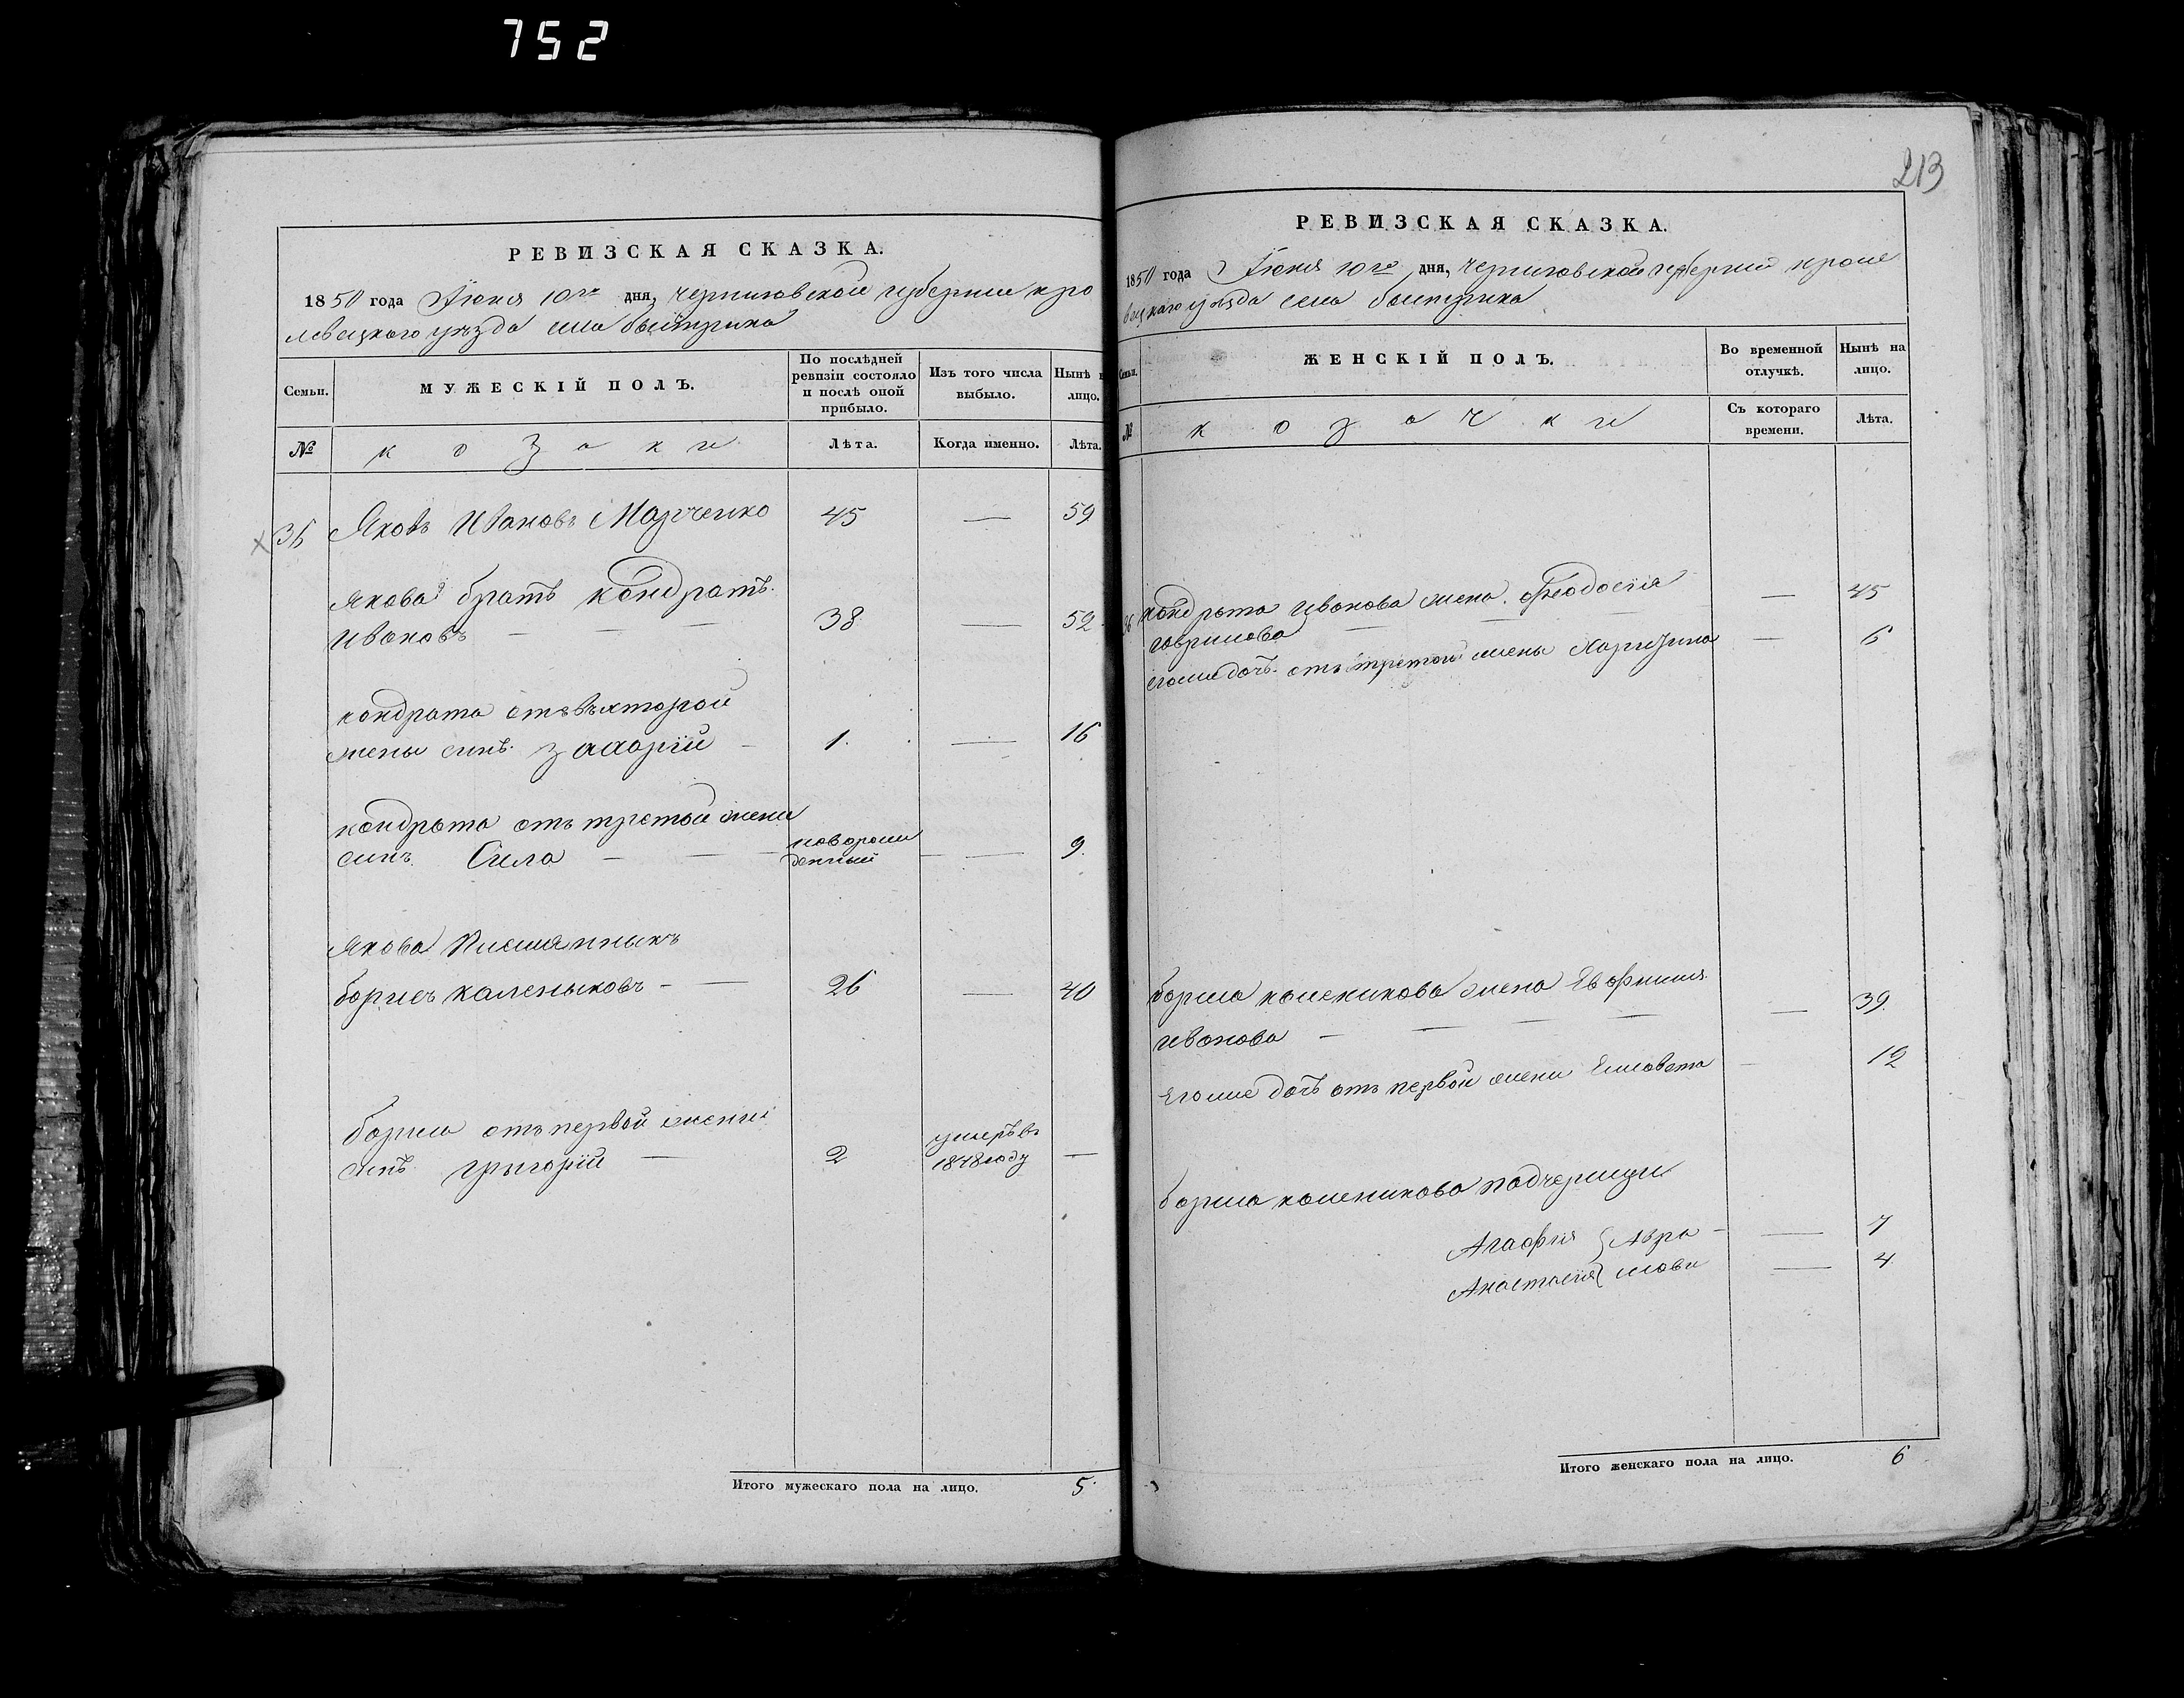 752
РЕВИЗСКАЯ СКАЗКА.
1850 года Іюня 10го дня, черниговской губерніи кро
левецкого уѣзда села быстрика
Семьи.
МУЖЕСКІЙ ПОЛЪ.
По послѣдней ревизіи состояло и послѣ оной прибыло.
Изъ того числа выбыло.
Нынѣ на лицо.
№
козаки
Лѣта.
Когда именно.
Лѣта.
36 Яковъ Ивановъ Марченко 45 — 59
Якова братъ кондратъ
Ивановъ — — — 38 — 52
кондрата отъ вторай
жены синъ захарій — 1. — 16
кондрата отъ третой жени
синъ Сила — — новорож
денный — 9.
Якова племянныкъ
борисъ каленыковъ — — 26 — 40
бориса отъ первой жени
синъ григорій — 2 умеръ в
1848 году —
Итого мужескаго пола на лицо. 5.
213
РЕВИЗСКАЯ СКАЗКА.
1850 года Іюня 10го дня, черниговской губерніи кроле
вецкаго уѣзда села быстрика
Семьи.
ЖЕНСКІЙ ПОЛЪ.
Во временной отлучкѣ.
Нынѣ на лицо.
№
козачки
Съ котораго времени.
Лѣта.
36 кондрата иванова жена Феодосія
гаврилова — — — 45
егоже дочь отъ третой жены Харитина — 6
бориса каленикова жена Евфимия
иванова — — — — — 39.
Егоже дочь отъ первой жени Елисавета — 12
бориса каленикова падчерици
Агафия } Авра — — 7
Анастасія } мови — 4.
Итого женскаго пола на лицо. 6